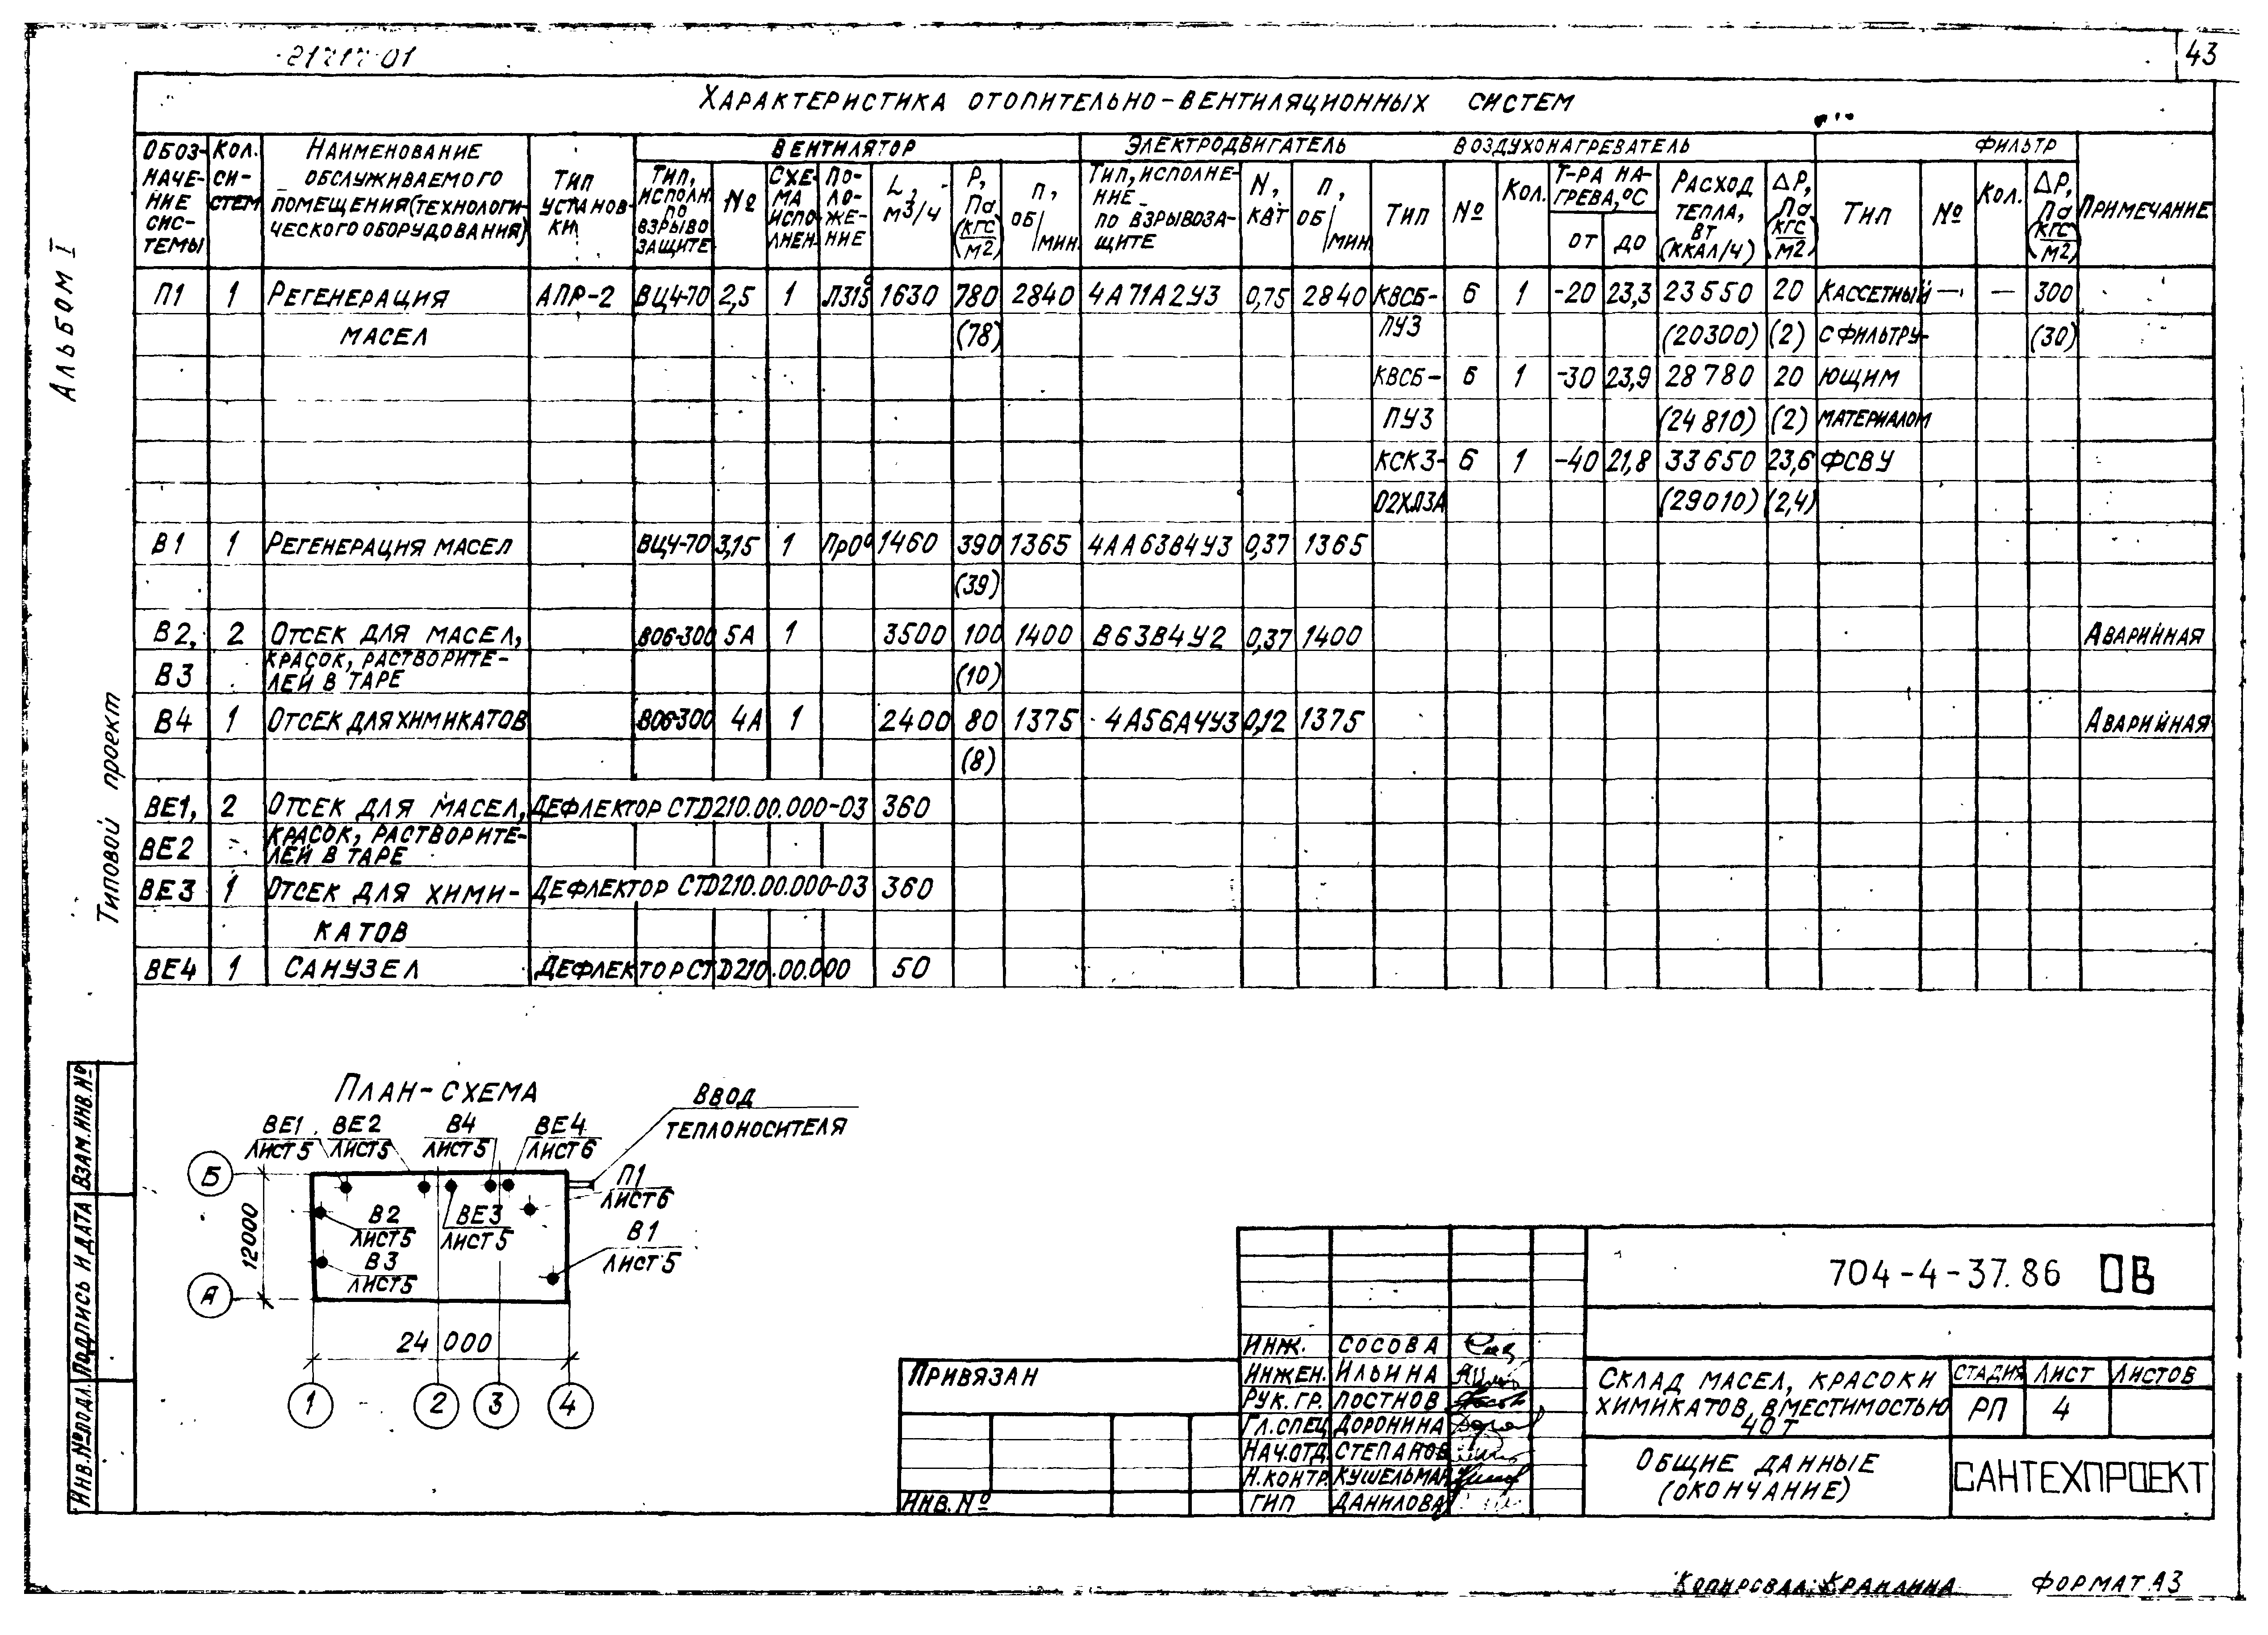 21717-01
43
Альбом I
Типовой проект
Характеристика отопительно-вентиляционных систем
Обозначение системы
Кол. систем
Наименование обслуживаемого помещения (технологического оборудования)
Тип установки
Вентилятор
Электродвигатель
Воздухонагреватель
Фильтр
Примечание
Тип, исполн. по взрывозащите
№
Схема исполнен.
Положение
L, м3/ч
P, Па (кгс/м2)
п, об/мин
Тип, исполнение по взрывозащите
N, кВт
п, об/мин
Тип
№
Кол.
Т-ра нагрева, °С
от
до
Расход тепла, Вт (ккал/ч)
ΔP, Па (кгс/м2)
Тип
№
Кол.
ΔP, Па (кгс/м2)
П1 1 Регенерация АПР-2 ВЦ4-70 2,5 1 Л315° 1630 780 2840 4А71А2У3 0,75 2840 КВСБ- 6 1 -20 23,3 23550 20 Кассетный — — 300
масел (78) ПУ3 (20300) (2) с фильтру- (30)
КВСБ- 6 1 -30 23,9 28780 20 ющим
ПУ3 (24810) (2) материалом
КСК3- 6 1 -40 21,8 33650 23,6 ФСВУ
02ХЛ3А (29010) (2,4)
В1 1 Регенерация масел ВЦ4-70 3,15 1 Пр0° 1460 390 1365 4АА63В4У3 0,37 1365
(39)
В2, 2 Отсек для масел, В06-300 5А 1 3500 100 1400 В63В4У2 0,37 1400 Аварийная
В3 красок, растворите-
лей в таре (10)
В4 1 Отсек для химикатов В06-300 4А 1 2400 80 1375 4А56А4У3 0,12 1375 Аварийная
(8)
ВЕ1, 2 Отсек для масел, Дефлектор СТD210.00.000-03 360
ВЕ2 красок, растворите-
лей в таре
ВЕ3 1 Отсек для хими- Дефлектор СТD210.00.000-03 360
катов
ВЕ4 1 Санузел Дефлектор СТD210.00.000 50
План-схема
Ввод
теплоносителя
ВЕ1 ВЕ2 В4 ВЕ4
лист 5 лист 5 лист 5 лист 6
Б
П1
лист 6
В2 ВЕ3 В1
лист 5 лист 5 лист 5
В3
лист 5
12000
А
24 000
1 2 3 4
Взам. инв. №
Подпись и дата
Инв. № подл.
Привязан
Инв. №
Инж. Сосова
Инжен. Ильина
Рук. гр. Постнов
Гл. спец Доронина
Нач. отд. Степанов
Н. контр. Кушельман
ГИП Данилова
704-4-37.86 ОВ
Склад масел, красок и
химикатов, вместимостью
40т
Стадия Лист Листов
РП 4
Общие данные
(окончание)
САНТЕХПРОЕКТ
Копировал: Кранлина
Формат А3